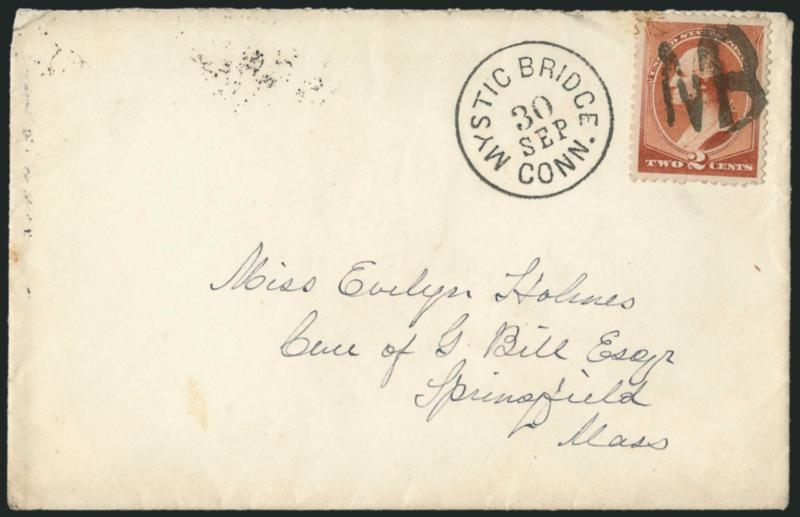 MYSTIC BRIDGE
30
SEP
CONN.
UNITED STATES POST
TWO 2 CENTS
MB
Miss Evelyn Holmes
Care of G Bill Esqr
Springfield
Mass